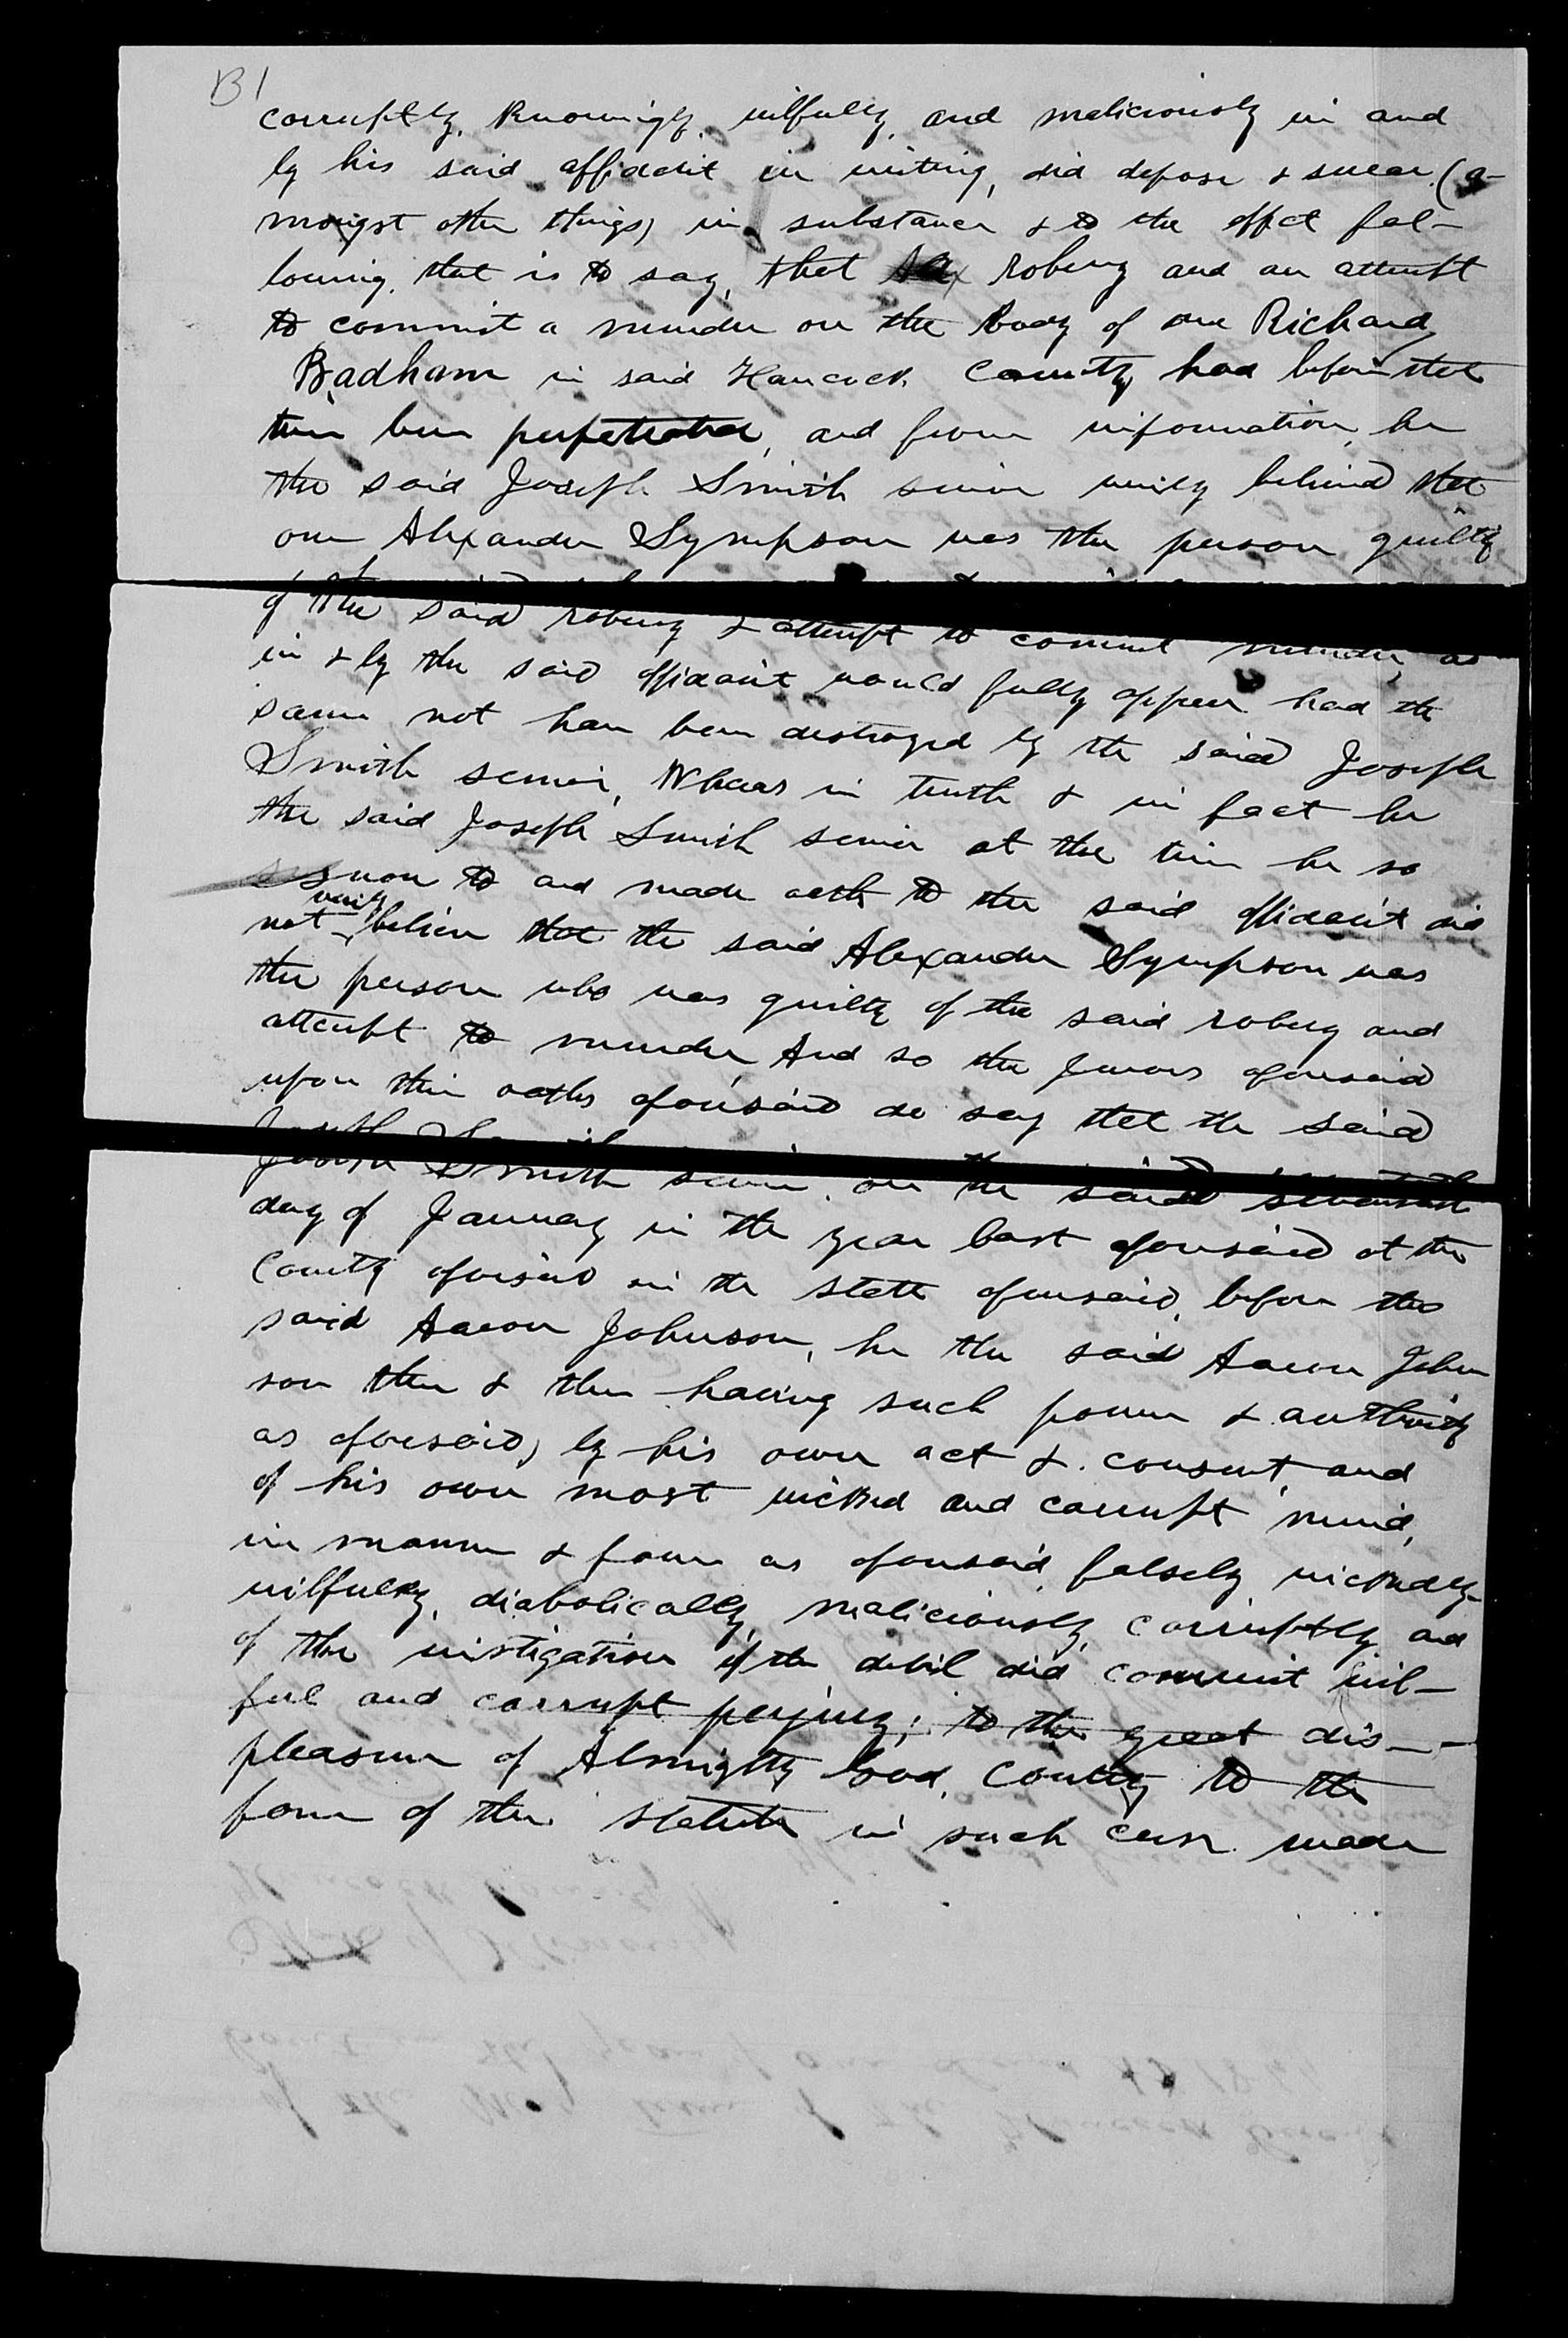 B1
corruptly, knowingly, wilfully, and maliciously in and
by his said affidavit in writing, did depose & swear (a-
mongst other things) in substance & to the effect fol-
lowing, that is to say, that robery and an attempt
to commit a murder on the body of one Richard
Badham in said Hancock County, had before that
time been perpetrated, and from information, he
the said Joseph Smith senior verily believed that
one Alexander Sympson was the person guilty
of the said robery & attempt to commit murder, as
in & by the said affidavit would fully appear had the
same not have been destroyed by the said Joseph
Smith senior, Whereas in truth & in fact he
the said Joseph Smith senior at the time he so
swon to and made oath to the said affidavit did
not verily believe that the said Alexander Sympson was
the person who was guilty of the said robery and
attempt to murder, And so the Jurors aforesaid
upon their oaths aforesaid do say that the said
Joseph Smith senior on the said seventeenth
day of January in the year last aforesaid at the
County aforesaid in the state aforesaid, before the
said Aaron Johnson, he the said Aaron John
son then & there having such power & authority
as aforesaid, by his own act & consent, and
of his own most wicked and corrupt mind,
in manner & form as aforesaid, falsely, wickedly,
wilfully, diabolically, maliciously, corruptly, and
of the instigation of the devil did commit wil-
ful and corrupt perjury; to the great dis-
pleasure of Almighty God, contry to the
form of the statute in such case made